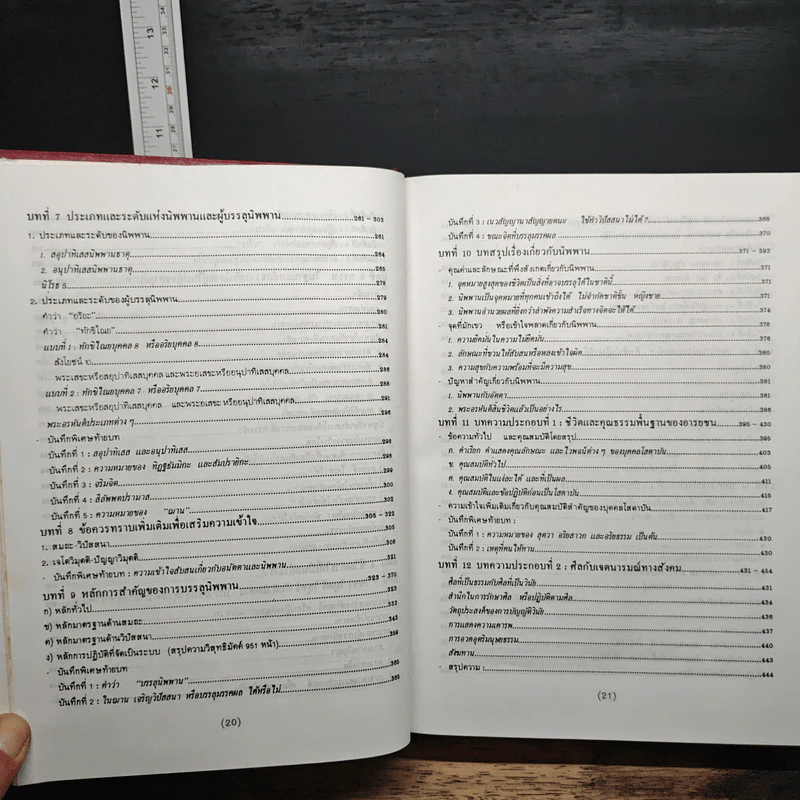 13
12
11
บทที่ 7 ประเภทและระดับแห่งนิพพานและผู้บรรลุนิพพาน 261 - 303
1. ประเภทและระดับของนิพพาน 261
1. สอุปาทิเสสนิพพานธาตุ 264
2. อนุปาทิเสสนิพพานธาตุ 270
นิโรธ 5 278
2. ประเภทและระดับของผู้บรรลุนิพพาน 279
คำว่า "อริยะ" 280
คำว่า "ทักขิไณย" 281
แบบที่ 1 : ทักขิไณยบุคคล 8 หรืออริยบุคคล 8 284
สังโยชน์ 10 284
พระเสขะหรือสอุปาทิเสสบุคคล และพระอเสขะหรืออนุปาทิเสสบุคคล 286
แบบที่ 2 : ทักขิไณยบุคคล 7 หรืออริยบุคคล 7 291
พระเสขะหรือสอุปาทิเสสบุคคล และพระอเสขะ หรืออนุปาทิเสสบุคคล
พระอรหันต์ประเภทต่าง ๆ 296
- บันทึกพิเศษท้ายบท
บันทึกที่ 1 : สอุปาทิเสส และอนุปาทิเสส 298
บันทึกที่ 2 : ความหมายของ ทิฏฐธัมมิกะ และสัมปรายิกะ 298
บันทึกที่ 3 : จริมจิต 299
บันทึกที่ 4 : สีลัพพตปรามาส
บันทึกที่ 5 : ความหมายของ "ฌาน"
บทที่ 8 ข้อควรทราบเพิ่มเติมเพื่อเสริมความเข้าใจ 305 - 322
1. สมถะ-วิปัสสนา 305
2. เจโตวิมุตติ-ปัญญาวิมุตติ
- บันทึกพิเศษท้ายบท : ความเข้าใจสับสนเกี่ยวกับอนัตตาและนิพพาน 321
บทที่ 9 หลักการสำคัญของการบรรลุนิพพาน 323 - 370
ก) หลักทั่วไป
ข) หลักมาตรฐานด้านสมถะ
ค) หลักมาตรฐานด้านวิปัสสนา
ง) หลักการปฏิบัติที่จัดเป็นระบบ (สรุปความวิสุทธิมัคค์ 951 หน้า)
- บันทึกพิเศษท้ายบท
บันทึกที่ 1 : คำว่า "บรรลุนิพพาน" 365
บันทึกที่ 2 : ในฌาน เจริญวิปัสสนา หรือบรรลุมรรคผล ได้หรือไม่ 365
(20)
บันทึกที่ 3 : เนวสัญญานาสัญญายตนะ ใช้ทำวิปัสสนาไม่ได้ ? 368
บันทึกที่ 4 : ขณะจิตที่บรรลุมรรคผล 370
บทที่ 10 บทสรุปเรื่องเกี่ยวกับนิพพาน 371 - 393
- คุณค่าและลักษณะที่พึงสังเกตเกี่ยวกับนิพพาน 371
1. จุดหมายสูงสุดของชีวิตเป็นสิ่งที่อาจบรรลุได้ในชาตินี้ 371
2. นิพพานเป็นจุดหมายที่ทุกคนเข้าถึงได้ ไม่จำกัดชาติชั้น หญิงชาย 371
3. นิพพานอำนวยผลที่ยิ่งกว่าลำพังความสำเร็จทางจิตจะให้ได้ 374
- จุดที่มักเขว หรือเข้าใจพลาดเกี่ยวกับนิพพาน 376
1. ความยึดมั่นในความไม่ยึดมั่น 376
2. ลักษณะที่ชวนให้สับสนหรือหลงเข้าใจผิด 380
3. ความสุขกับความพร้อมที่จะมีความสุข 380
- ปัญหาสำคัญเกี่ยวกับนิพพาน 381
1. นิพพานกับอัตตา 381
2. พระอรหันต์สิ้นชีวิตแล้วเป็นอย่างไร
บทที่ 11 บทความประกอบที่ 1 : ชีวิตและคุณธรรมพื้นฐานของอารยชน 395 - 430
- ข้อความทั่วไป และคุณสมบัติโดยสรุป 395
ก. คำเรียก คำแสดงคุณลักษณะ และไวพจน์ต่าง ๆ ของบุคคลโสดาบัน 402
ข. คุณสมบัติทั่วไป 405
ค. คุณสมบัติในแง่ละได้ และที่เป็นผล
ง. คุณสมบัติและข้อปฏิบัติก่อนเป็นโสดาบัน
- ความเข้าใจเพิ่มเติมเกี่ยวกับคุณสมบัติสำคัญของบุคคลโสดาบัน 417
- บันทึกพิเศษท้ายบท :
บันทึกที่ 1 : ความหมายของ สุตวา อริยสาวก และอริยธรรม เป็นต้น 430
บันทึกที่ 2 : เหตุที่คนให้ทาน 430
บทที่ 12 บทความประกอบที่ 2 : ศีลกับเจตนารมณ์ทางสังคม 431 - 454
ศีลที่เป็นธรรมกับศีลที่เป็นวินัย 431
สำนึกในการรักษาศีล หรือปฏิบัติตามศีล 434
วัตถุประสงค์ของการบัญญัติวินัย 436
การแสดงความเคารพ 437
การอวดอุตริมนุสธรรม
สังฆทาน 443
- สรุปความ : 444
(21)